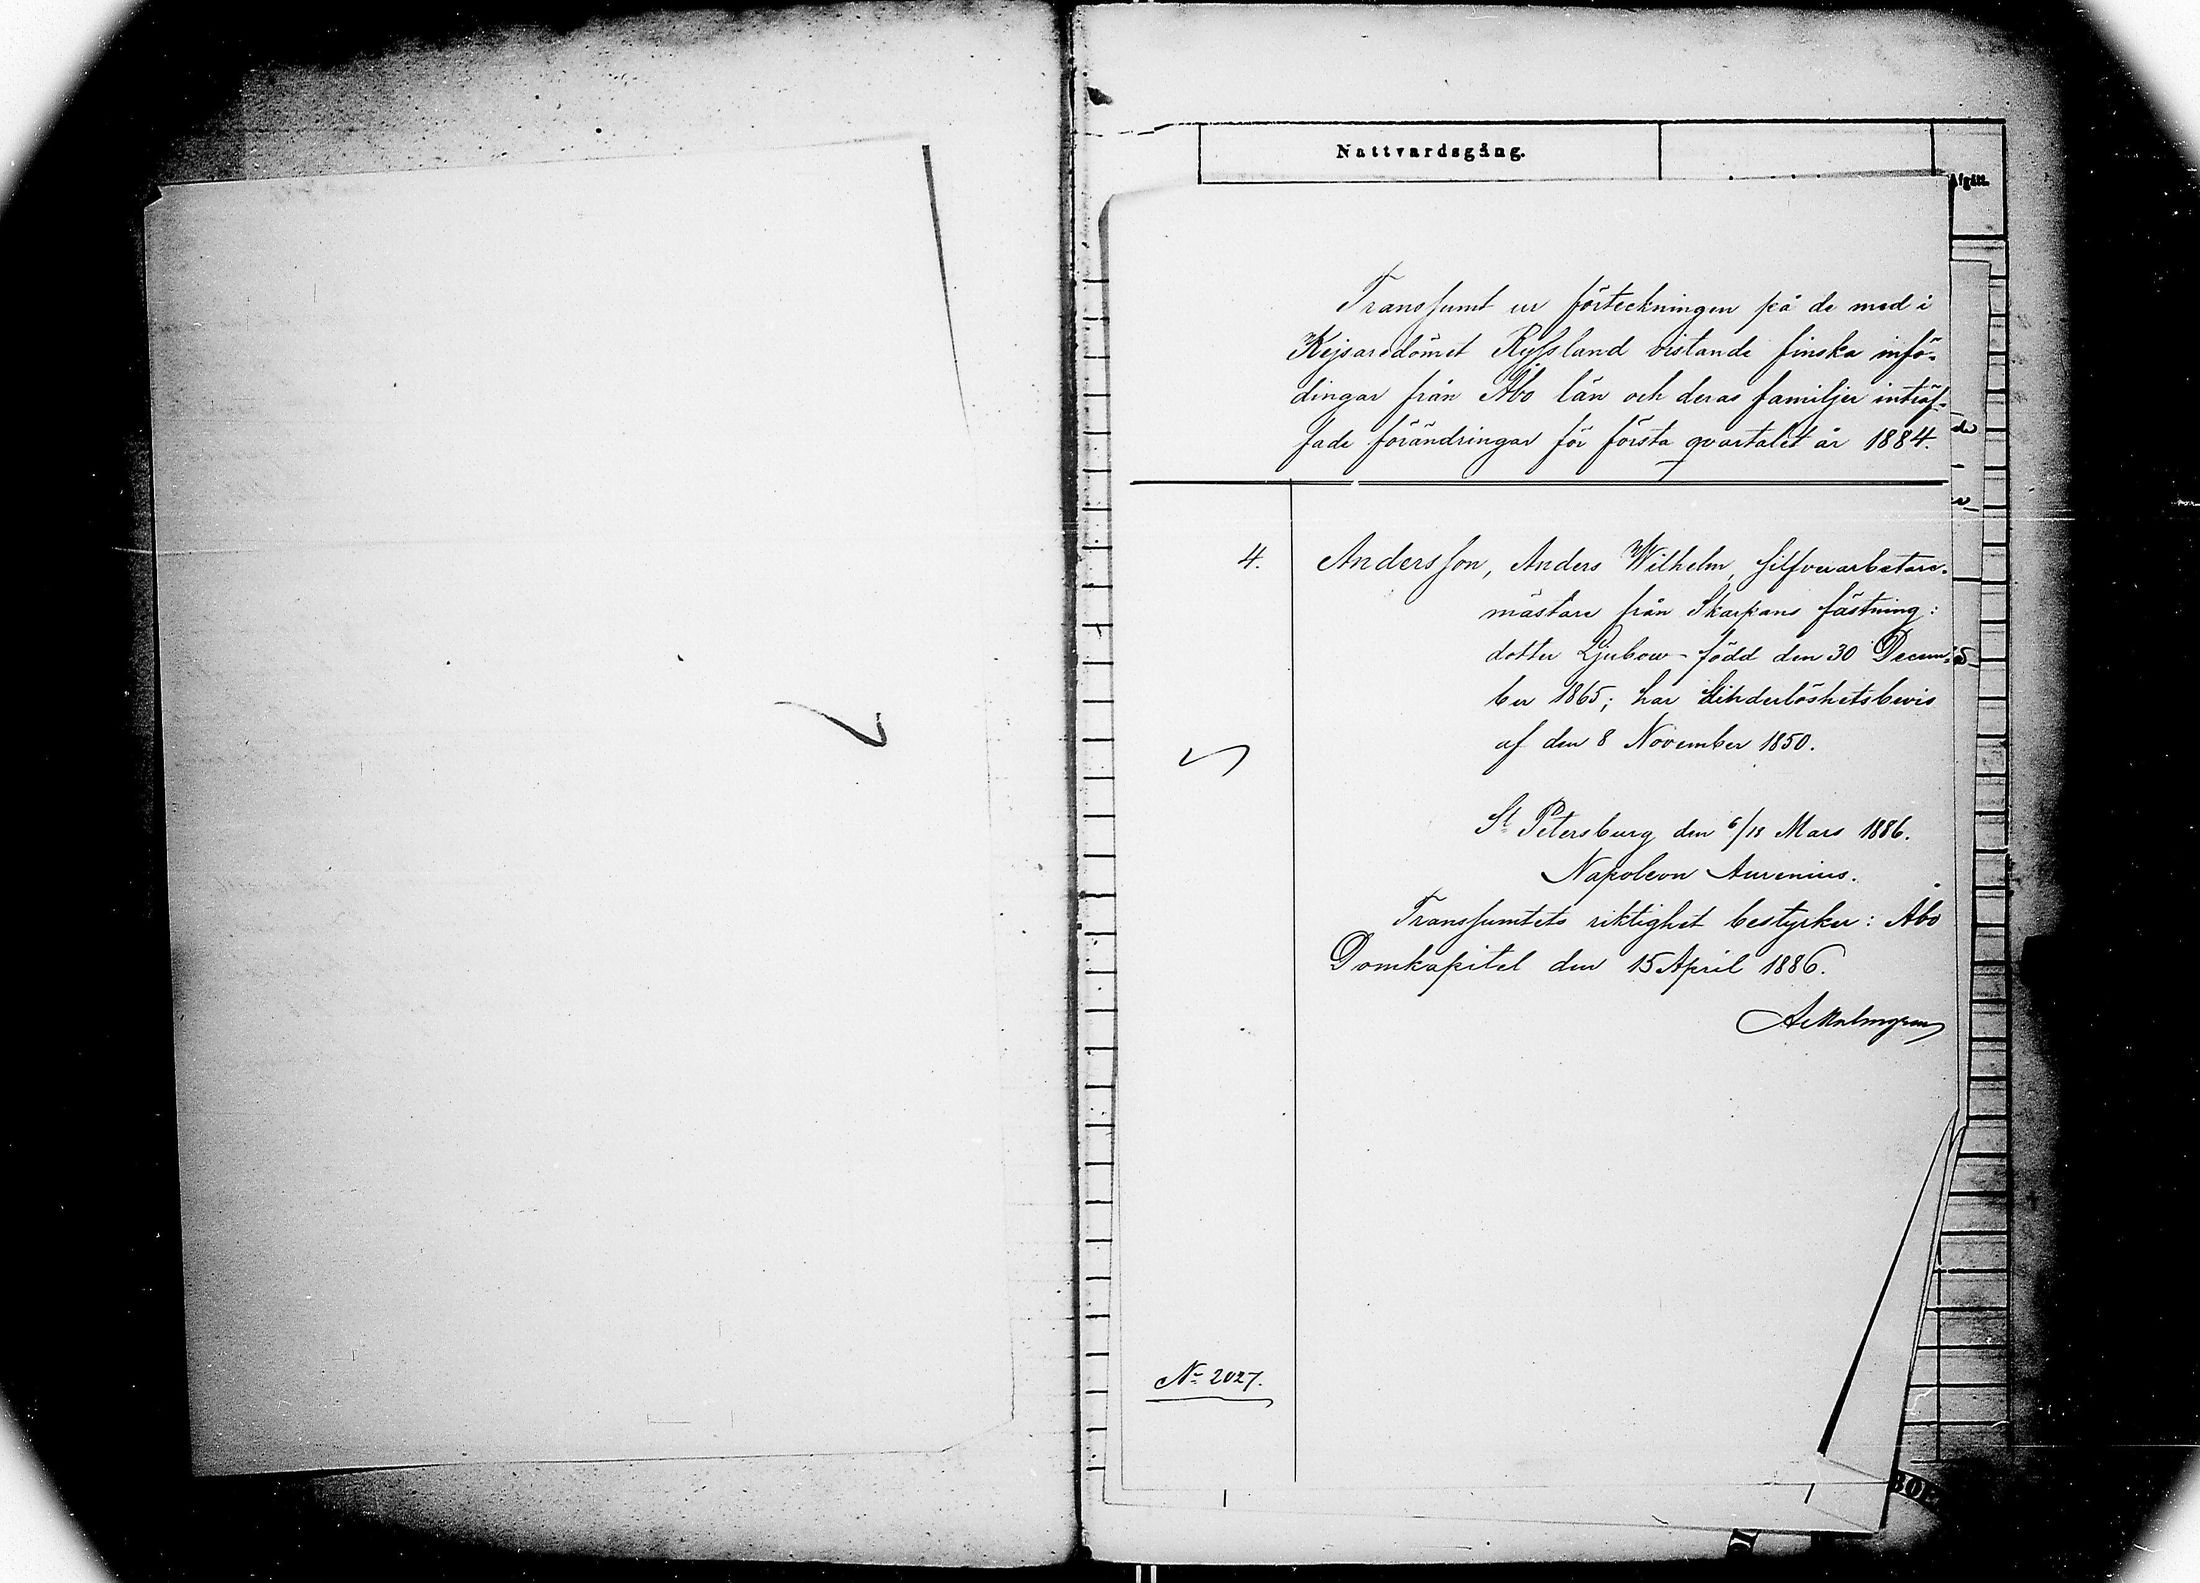 Nattvardsgång.
Afgått.
Transsumt ur förteckningen på de med i
Kejsaredömet Ryssland vistande finska infö-
dingar från Åbo län och deras familjer inträf-
fade förändringar för första qvartalet år 1884.
4. Andersson, Anders Wilhelm, silfverarbetare-
mästare från Skarpans fästning:
dotter Ljubow - född den 30 Decem-
ber 1865; har hinderlöshetsbevis
af den 8 November 1850.
St Petersburg den 6/18 Mars 1886.
Napoleon Aurenius.
Transsumtets riktighet bestyrker: Åbo
Domkapitel den 15 April 1886.
Malmgren
No 2027.